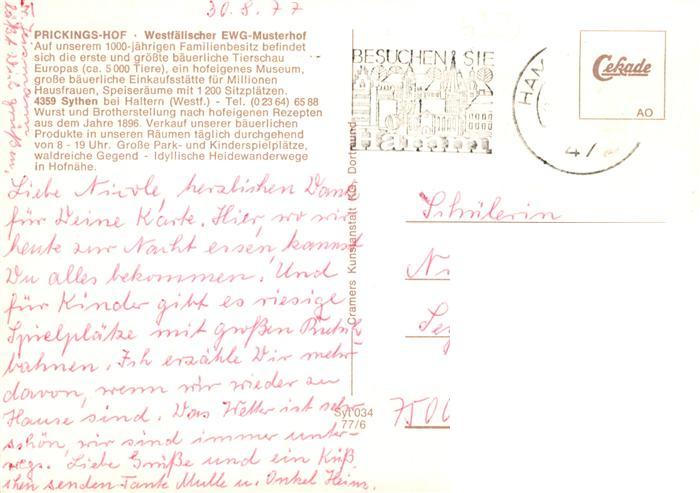 30.8.77
PRICKINGS-HOF · Westfälischer EWG-Musterhof
Auf unserem 1000-jährigen Familienbesitz befindet
sich die erste und größte bäuerliche Tierschau
Europas (ca. 5 000 Tiere), ein hofeigenes Museum,
große bäuerliche Einkaufsstätte für Millionen
Hausfrauen, Speiseräume mit 1 200 Sitzplätzen.
4359 Sythen bei Haltern (Westf.) - Tel. (0 23 64) 65 88
Wurst und Brotherstellung nach hofeigenen Rezepten
aus dem Jahre 1896. Verkauf unserer bäuerlichen
Produkte in unseren Räumen täglich durchgehend
von 8 - 19 Uhr. Große Park- und Kinderspielplätze,
waldreiche Gegend - Idyllische Heidewanderwege
in Hofnähe.
Liebe Nicole, herzlichen Dank
für Deine Karte. Hier, wo wir
heute zur Nacht essen, kannst
Du alles bekommen. Und
für Kinder gibt es riesige
Spielplätze mit großen Rutsch-
bahnen. Ich erzähle Dir mehr
davon, wenn wir wieder zu
Hause sind. Das Wetter ist sehr
schön, wir sind immer unter-
wegs. Liebe Grüße und ein Küß
chen senden Tante Mulle u. Onkel Heinz.
Cramers Kunstanstalt KG, Dortmund
Syt 034
77/6
BESUCHEN SIE
HAM
Cekade
AO
Schülerin
Ni
7500